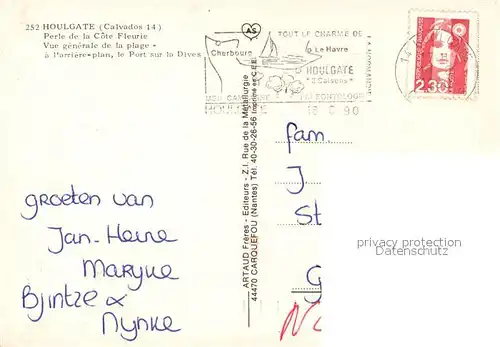 252 HOULGATE (Calvados 14)
Perle de la Côte Fleurie
Vue générale de la plage -
à l'arrière-plan, le Port sur la Dives
AS
TOUT LE CHARME DE
LA NORMANDIE
Cherbourg
Le Havre
HOULGATE
"2 Caisons"
18 90
2,30
14
ARTAUD Frères - Editeurs - Z.I. Rue de la Métallurgie
44470 CARQUEFOU (Nantes) Tél. 40-30-26-56 Imprimé en C.E.E.
fam.
J.
St
G
N
groeten van
Jan-Heine
Maryke
Bjintze &
Nynke
privacy protection
Datenschutz